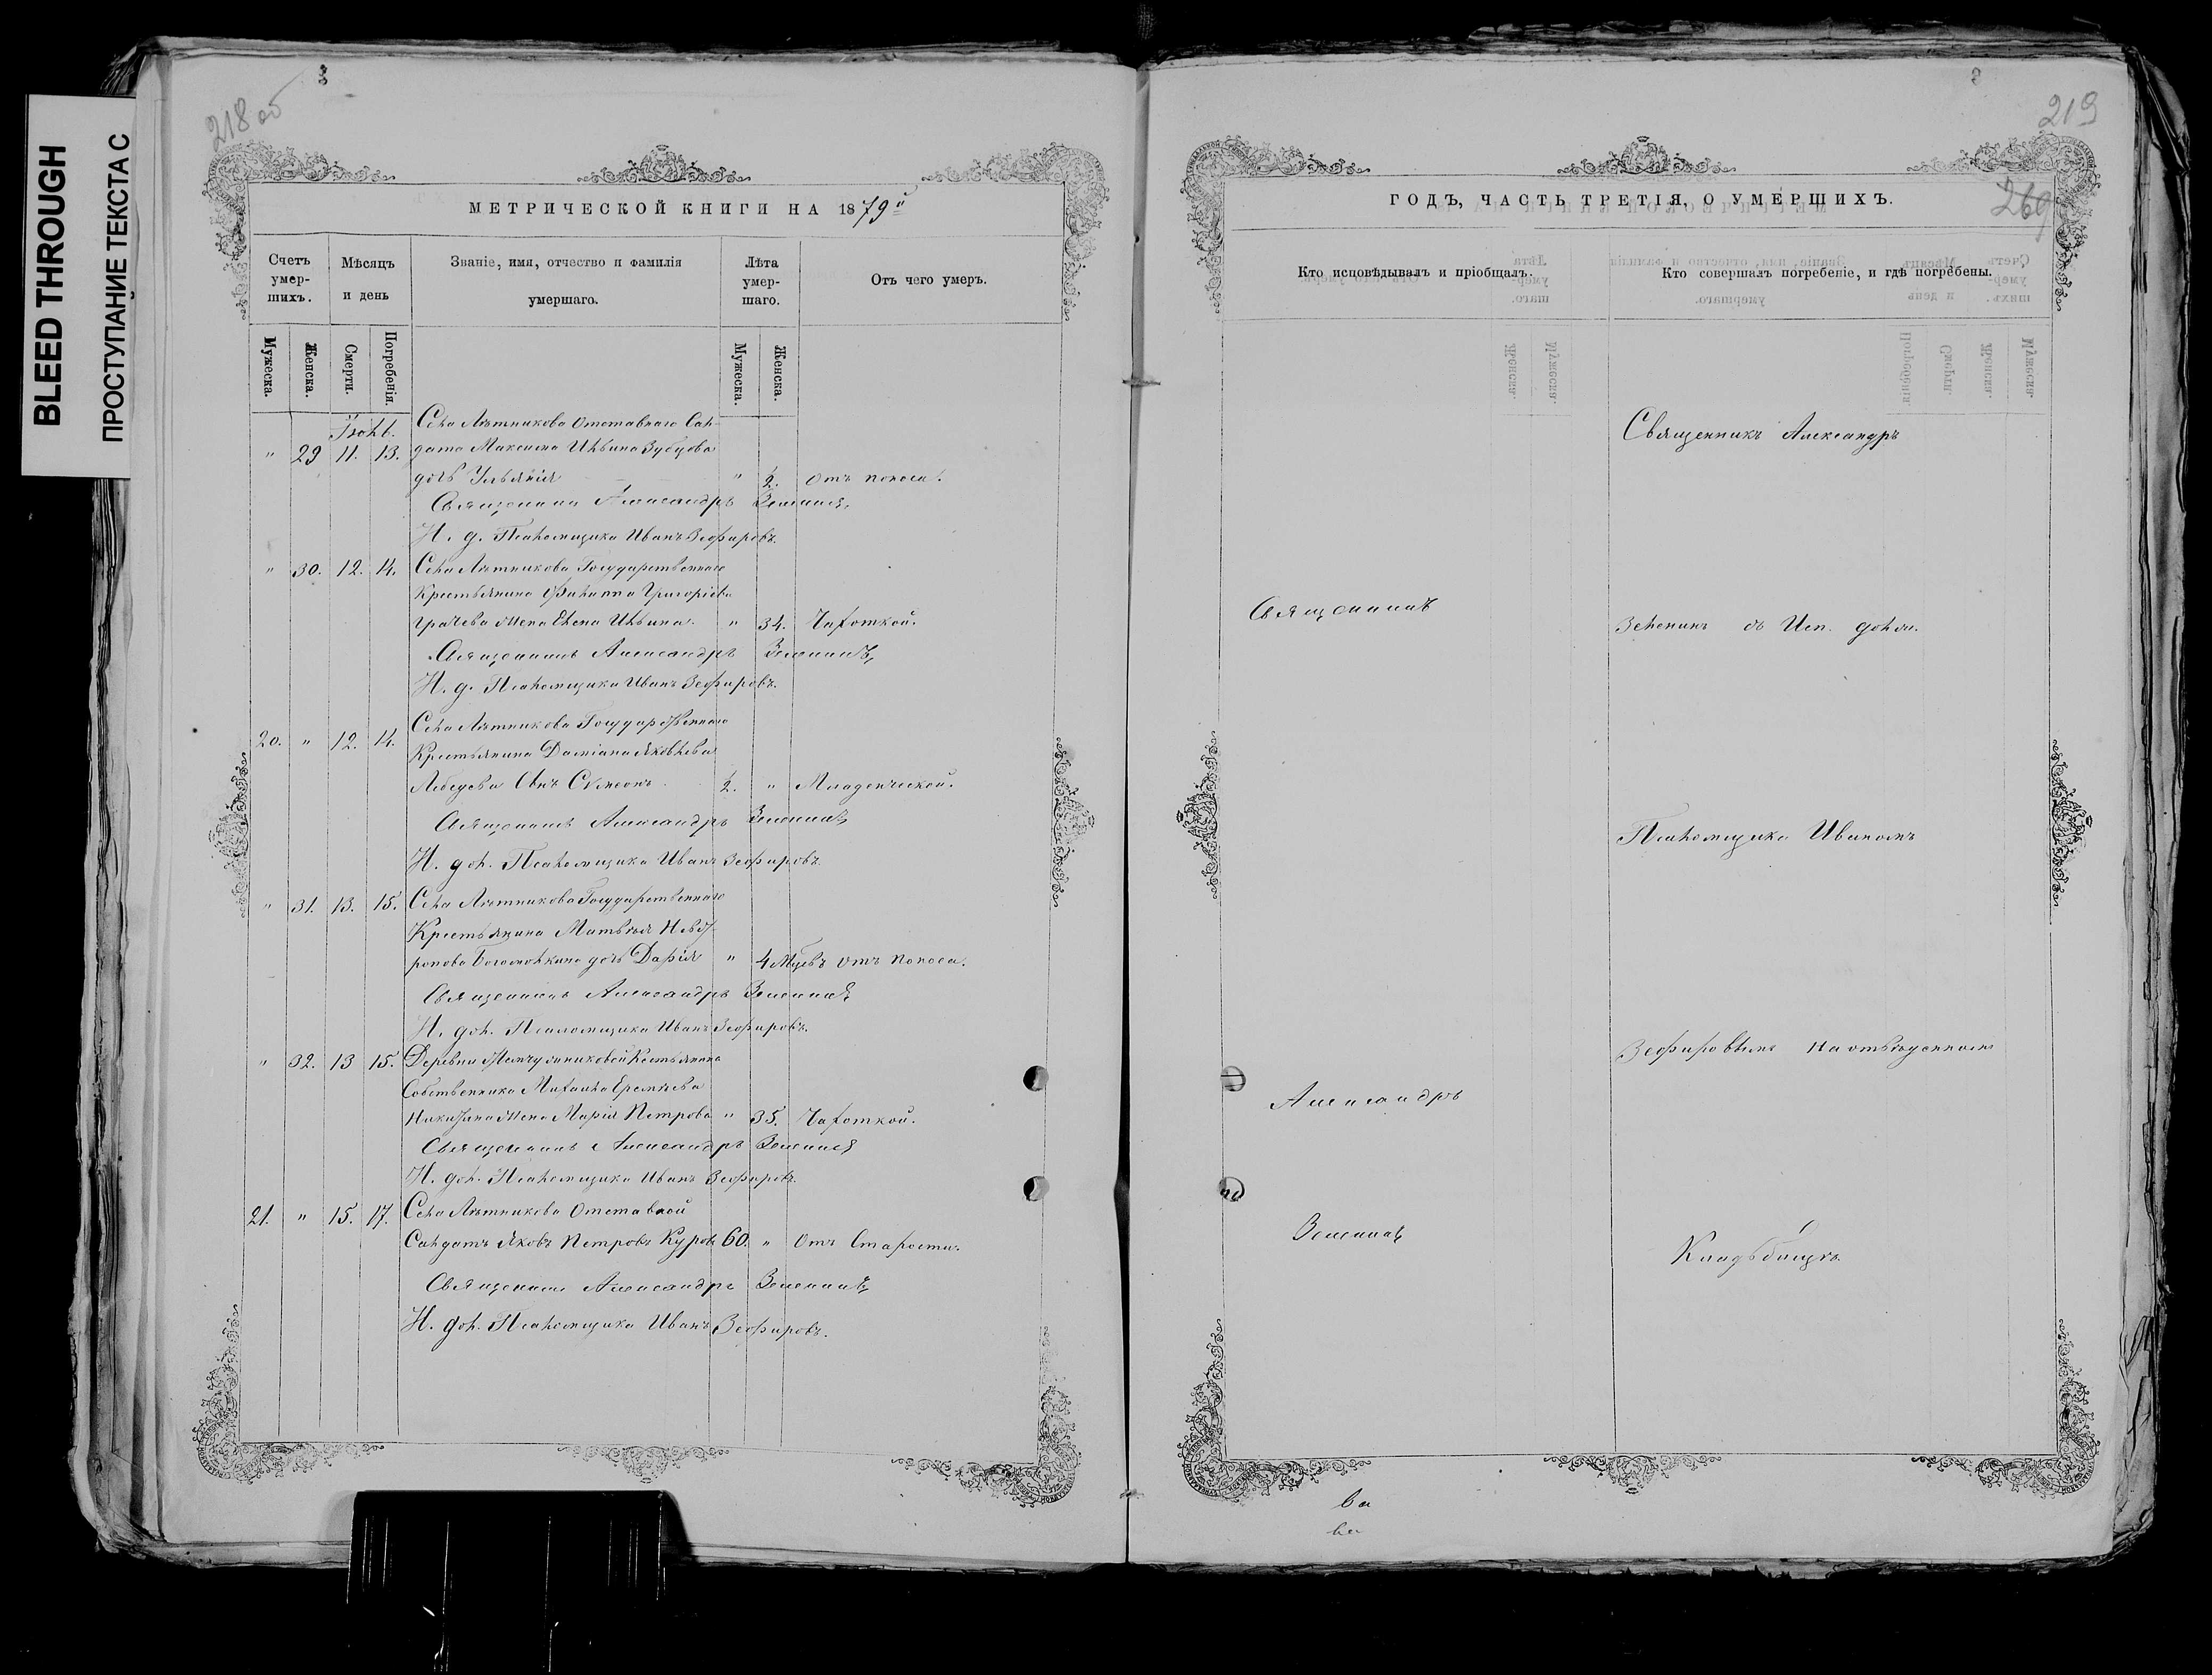 BLEED THROUGH
ПРОСТУПАНИЕ ТЕКСТА С
218 об
МЕТРИЧЕСКОЙ КНИГИ НА 1879й
Счетъ умер-шихъ.
Мѣсяцъ и день
Званіе, имя, отчество и фамилія умершаго.
Лѣта умер-шаго.
Отъ чего умеръ.
Мужеска. Женска. Смерти. Погребенія. Мужеска. Женска.
Іюль.
Села Лѣтникова Отставнаго Сол-
" 29 11. 13. дата Максима Ильина Зубцова
дочь Ульянія " 2. отъ поноса.
Священникъ Александръ Зеленинъ,
И. д. Псаломщика Иванъ Зефировъ.
" 30. 12. 14. Села Лѣтникова Государственнаго
Крестьянина Филиппа Григоріева
Грачева жена Елена Ильина. " 34. Чахоткой.
Священникъ Александръ Зеленинъ,
И. д. Псаломщика Иванъ Зефировъ.
Села Лѣтникова Государственнаго
20. " 12. 14. Крестьянина Даміана Яковлева
Лебедева сынъ Сѵмеонъ 2. " Младенческой.
Священникъ Александръ Зеленинъ,
И. дол. Псаломщика Иванъ Зефировъ.
" 31. 13. 15. Села Лѣтникова Государственнаго
Крестьянина Матвѣя
Богомолкина дочь Дарія " 4 мѣсвъ отъ поноса.
Священникъ Александръ Зеленинъ
И. дол. Псаломщика Иванъ Зефировъ.
" 32. 13 15. Деревни
Собственника Михаила Еремѣева
Никитина жена Марія Петрова " 35. Чахоткой.
Священникъ Александръ Зеленинъ
И. дол. Псаломщика Иванъ Зефировъ.
21. " 15. 17. Села Лѣтникова Отставной
Солдатъ Яковъ Петровъ 60. " Отъ Старости.
Священникъ Александръ Зеленинъ,
И. дол. Псаломщика Иванъ Зефировъ.
219
269
ГОДЪ, ЧАСТЬ ТРЕТІЯ, О УМЕРШИХЪ.
Кто исповѣдывалъ и пріобщалъ.
Кто совершалъ погребеніе, и гдѣ погребены.
Священникъ Александръ
Священникъ
Зеленинъ съ Исп. долж.
Псаломщика Иваномъ
Зефировымъ на отведенномъ
Александръ
Зеленинъ
Кладбищѣ.